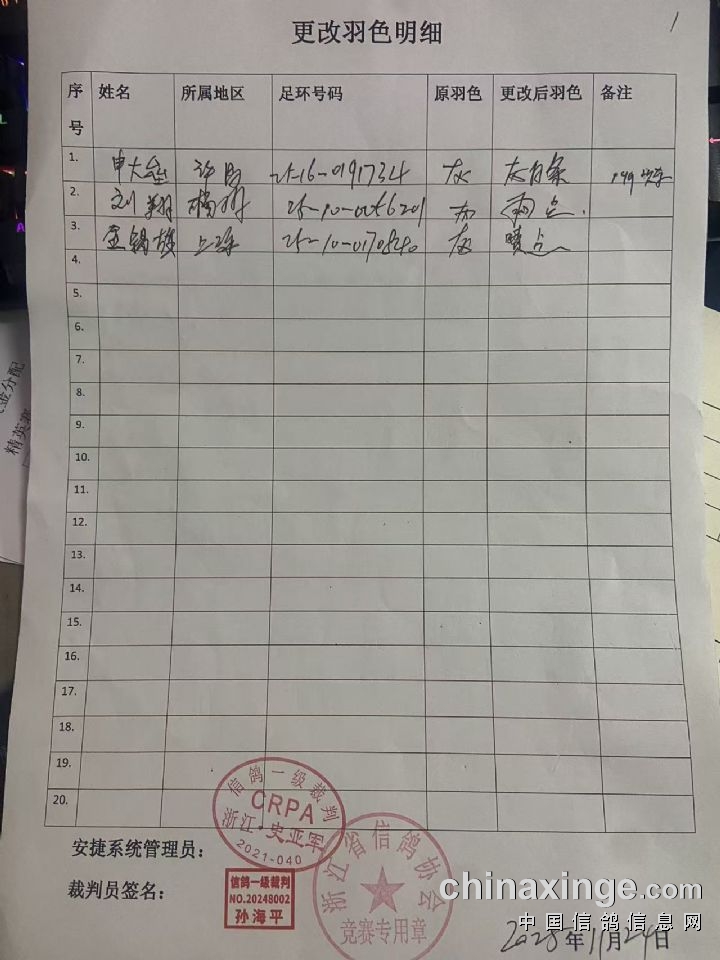 1
更改羽色明细
序号 姓名 所属地区 足环号码 原羽色 更改后羽色 备注
1. 申大 许昌 25-16-0191734 灰 灰白条
2. 刘翔 25-10-0056201 灰 雨点
3. 王锡雄 上海 25-10-0170840 灰 点
4.
5.
6.
7.
8.
9.
10.
11.
12.
13.
14.
15.
16.
17.
18.
19.
20.
信鸽一级裁判
CRPA
浙江·史亚军
2021-040
安捷系统管理员：
裁判员签名：
信鸽一级裁判
NO.20248002
孙海平
浙江省信鸽协会
竞赛专用章
chinaxinge.com
中国信鸽信息网
2025年11月24日
精英赛
金分配